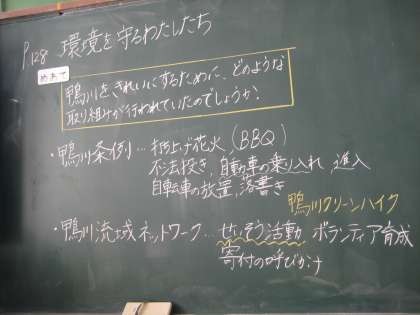 P128 環境を守るわたしたち
めあて
鴨川をきれいにするために、どのような
取り組みが行われていたのでしょうか？
・鴨川条例…打上げ花火、(BBQ)
不法投き、自動車の乗り入れ、進入
自転車の放置、落書き
鴨川クリーンハイク
・鴨川流域ネットワーク…せいそう活動 ボランティア育成
寄付の呼びかけ